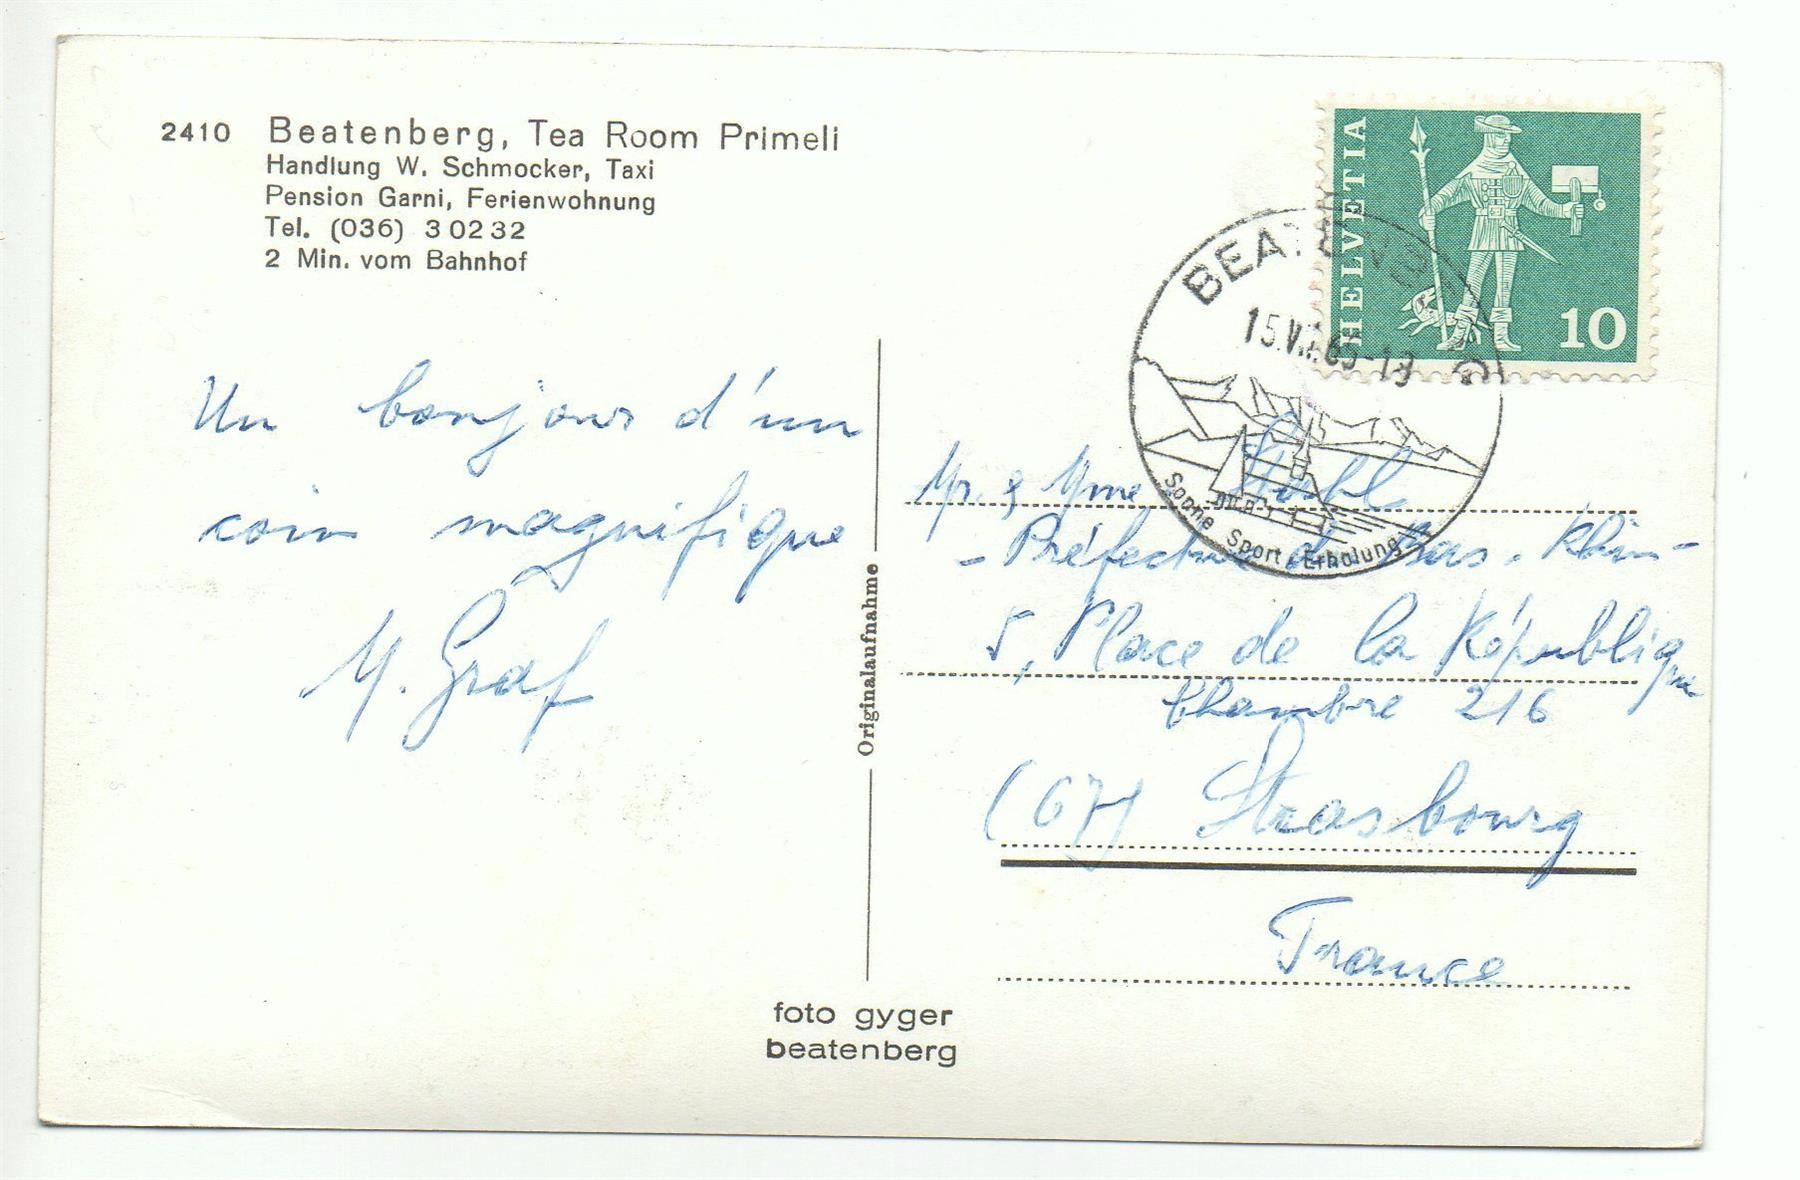 2410 Beatenberg, Tea Room Primeli
Handlung W. Schmocker, Taxi
Pension Garni, Ferienwohnung
Tel. (036) 3 02 32
2 Min. vom Bahnhof
Un bonjour d'un
coin magnifique
M. Graf
Originalaufnahme
foto gyger
beatenberg
HELVETIA
10
BEATENBERG
Sonne Sport Erholung
Mr. & Mme
- Préfecture du Bas-Rhin -
5, Place de la République
Chambre 216
(67) Strasbourg
France